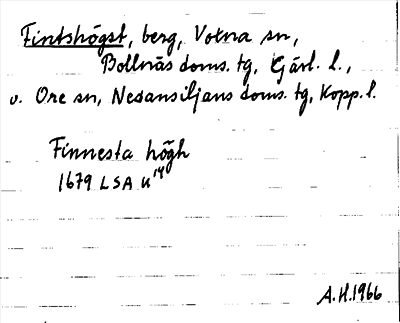 Fintshögst, berg, Votna sn,
Bollnäs doms. tg, Gävl. l.,
o. Ore sn, Nedansiljans doms. tg, Kopp. l.
Finnesta högh
1679 LSA U¹⁴
A.H.1966